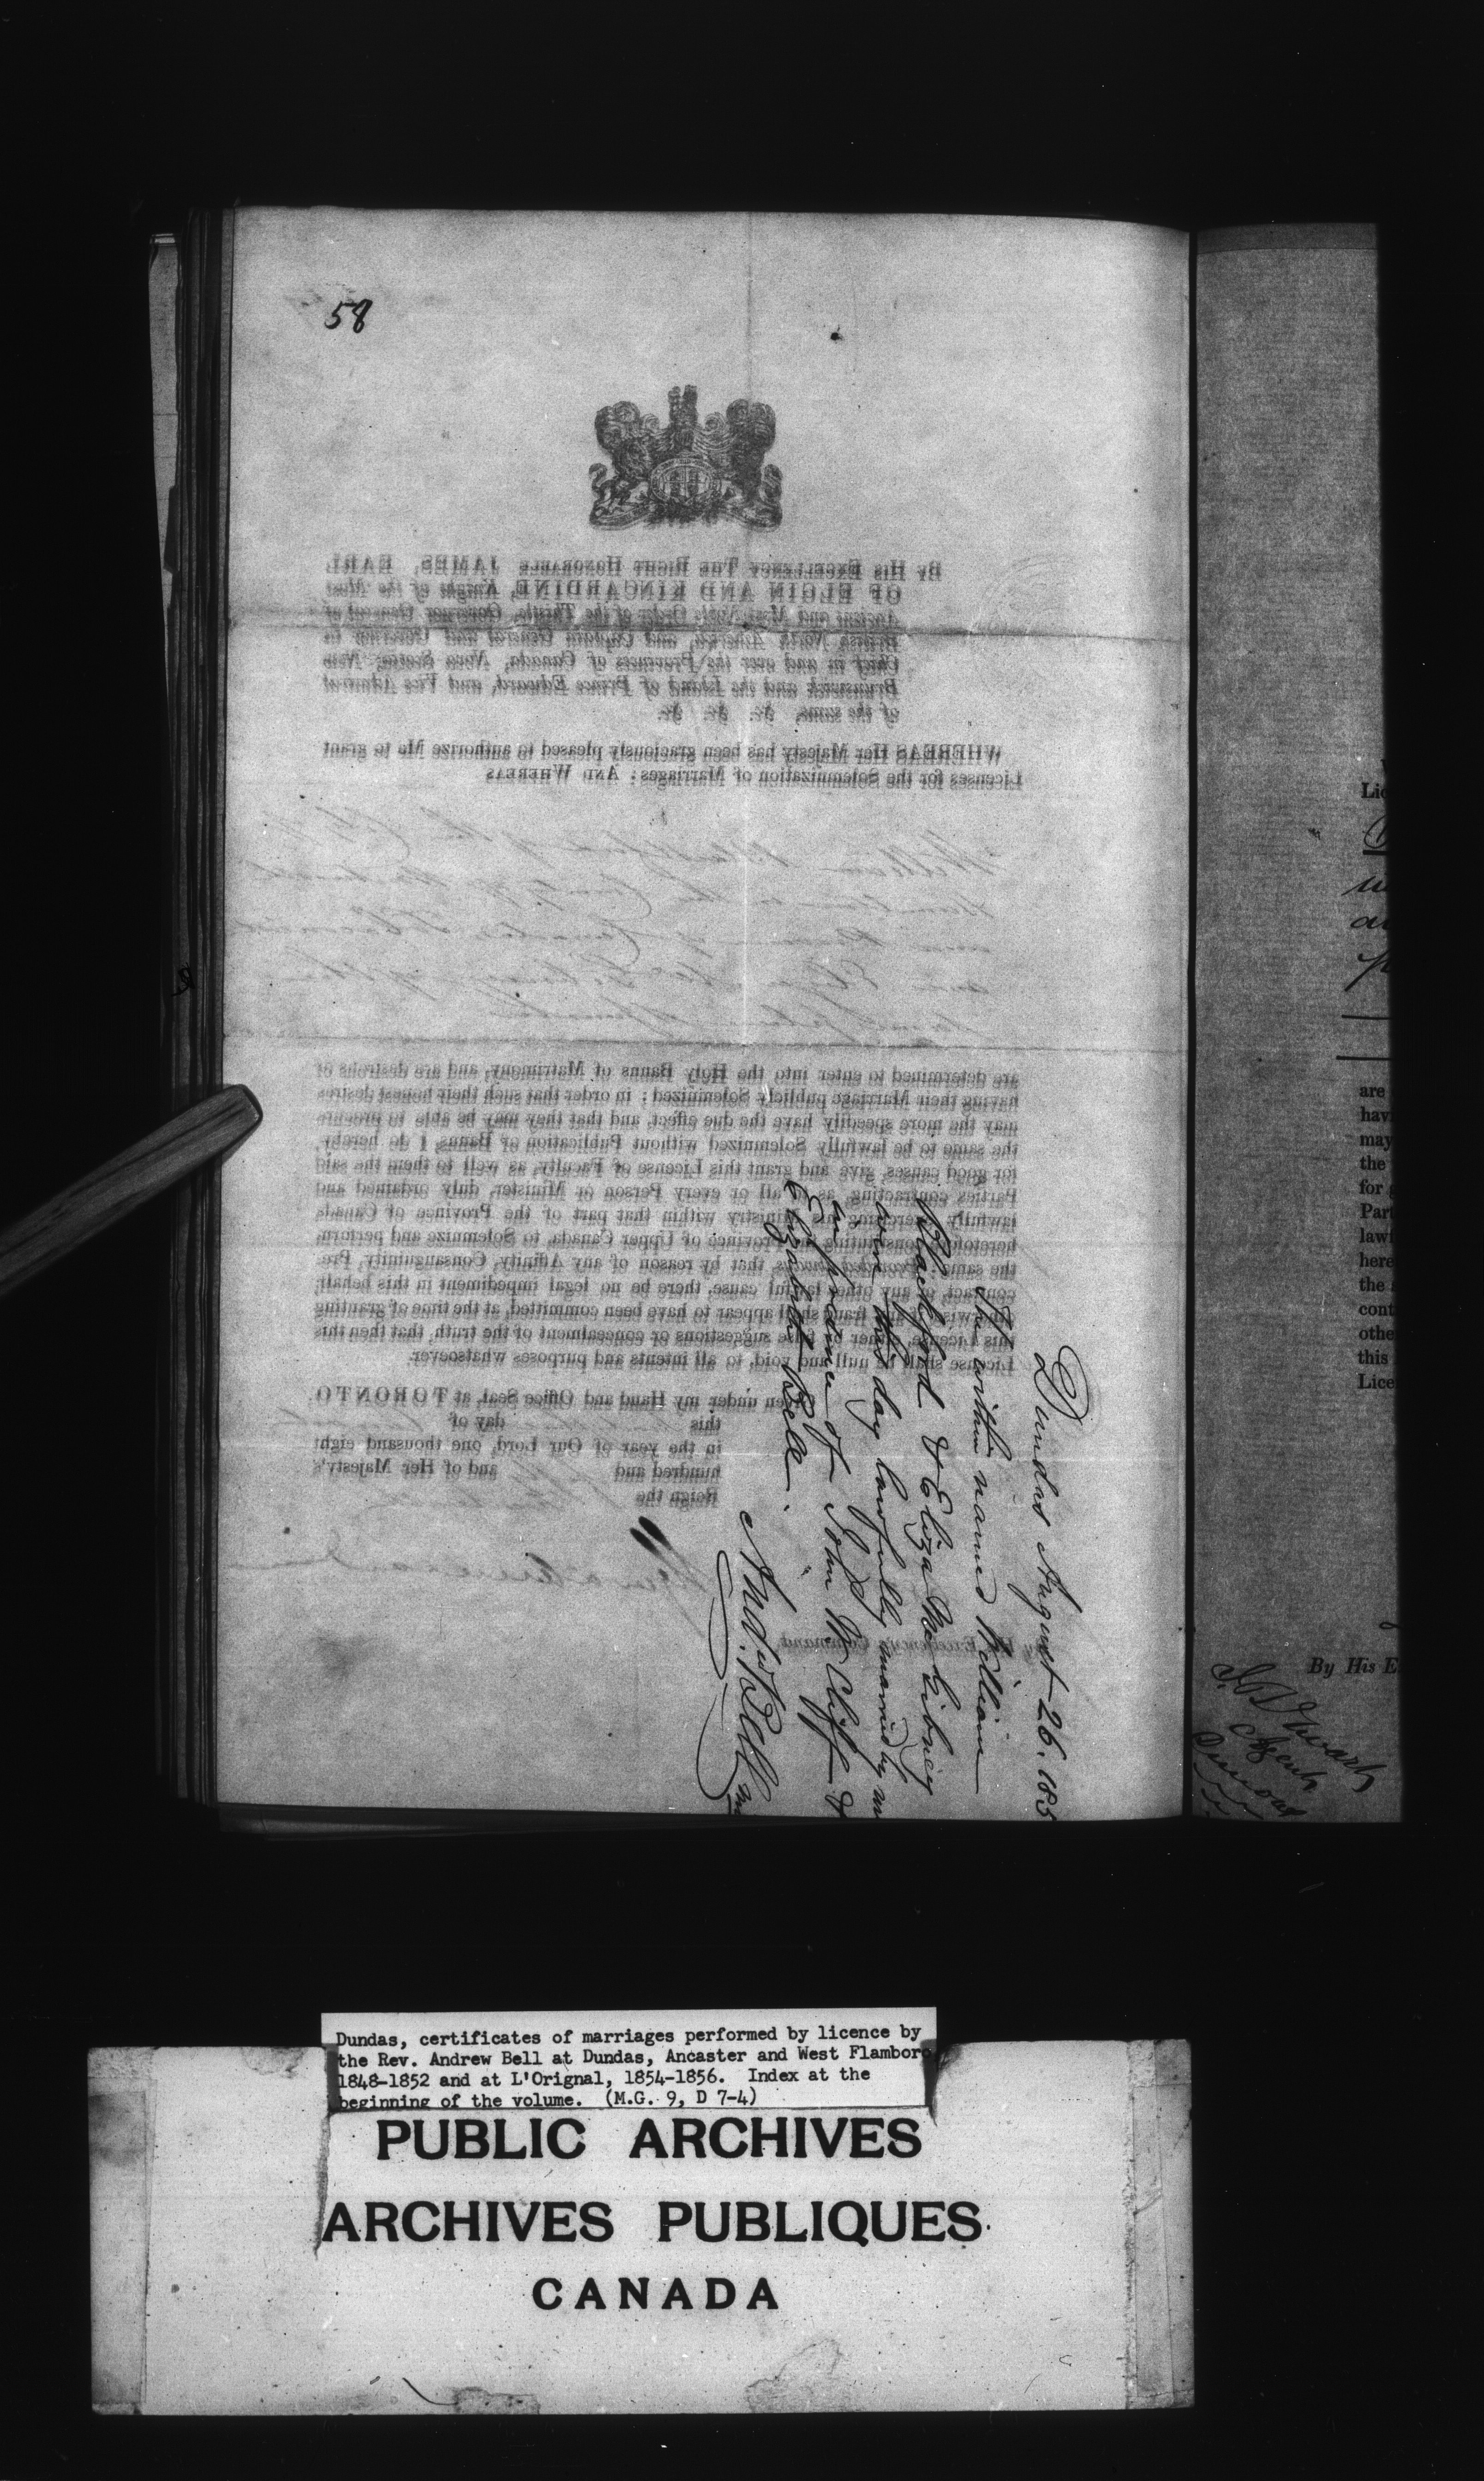 58
By His Excellency The Right Honorable JAMES, EARL
OF ELGIN AND KINCARDINE, Knight of the Most
Ancient and Most Noble Order of the Thistle, Governor General of
British North America, and Captain General and Governor in
Chief in and over the Provinces of Canada, Nova Scotia, New
Brunswick and the Island of Prince Edward, and Vice Admiral
of the same, &c. &c. &c.
WHEREAS Her Majesty has been graciously pleased to authorize Me to grant
Licenses for the Solemnization of Marriages: And Whereas
William Blackford of the City of
Hamilton in the County of
and Province of Canada
and Eliza McGibney of the
same place Spinster
are determined to enter into the Holy Banns of Matrimony, and are desirous of
having their Marriage publicly Solemnized; in order that such their honest desires
may the more speedily have the due effect, and that they may be able to procure
the same to be lawfully Solemnized without Publication of Banns, I do hereby,
for good causes, give and grant this License of Faculty, as well to them the said
Parties contracting, as to all or every Person or Minister, duly ordained and
lawfully exercising his Ministry within that part of the Province of Canada
heretofore constituting the Province of Upper Canada, to Solemnize and perform,
the same: Provided always, that by reason of any Affinity, Consanguinity, Pre-
contract, or any other lawful cause, there be no legal impediment in this behalf,
otherwise, if any fraud shall appear to have been committed, at the time of granting
this License, either by false suggestions or concealment of the truth, that then this
License shall be null and void, to all intents and purposes whatsoever.
Given under my Hand and Office Seal, at TORONTO
this day of
in the year of Our Lord, one thousand eight
hundred and and of Her Majesty's
Reign the
By His Excellency's Command
Dundas August 26. 185
The within named William
Blackford & Eliza McGibney
were this day lawfully married by me
in presence of John W. Cliff &
Elizabeth Bell.
Andw. Bell
Lic
are
hav
may
the
for
Part
lawf
here
the
cont
othe
this
Lice
By His E
Agent
Dundas, certificates of marriages performed by licence by
the Rev. Andrew Bell at Dundas, Ancaster and West Flamboro
1848-1852 and at L'Orignal, 1854-1856. Index at the
beginning of the volume. (M.G. 9, D 7-4)
PUBLIC ARCHIVES
ARCHIVES PUBLIQUES
CANADA